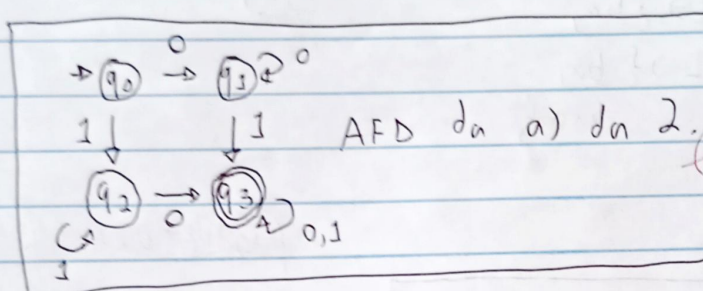 0
q0 q1 0
1 1 AFD da a) da 2.
q2 q3
0 0,1
1